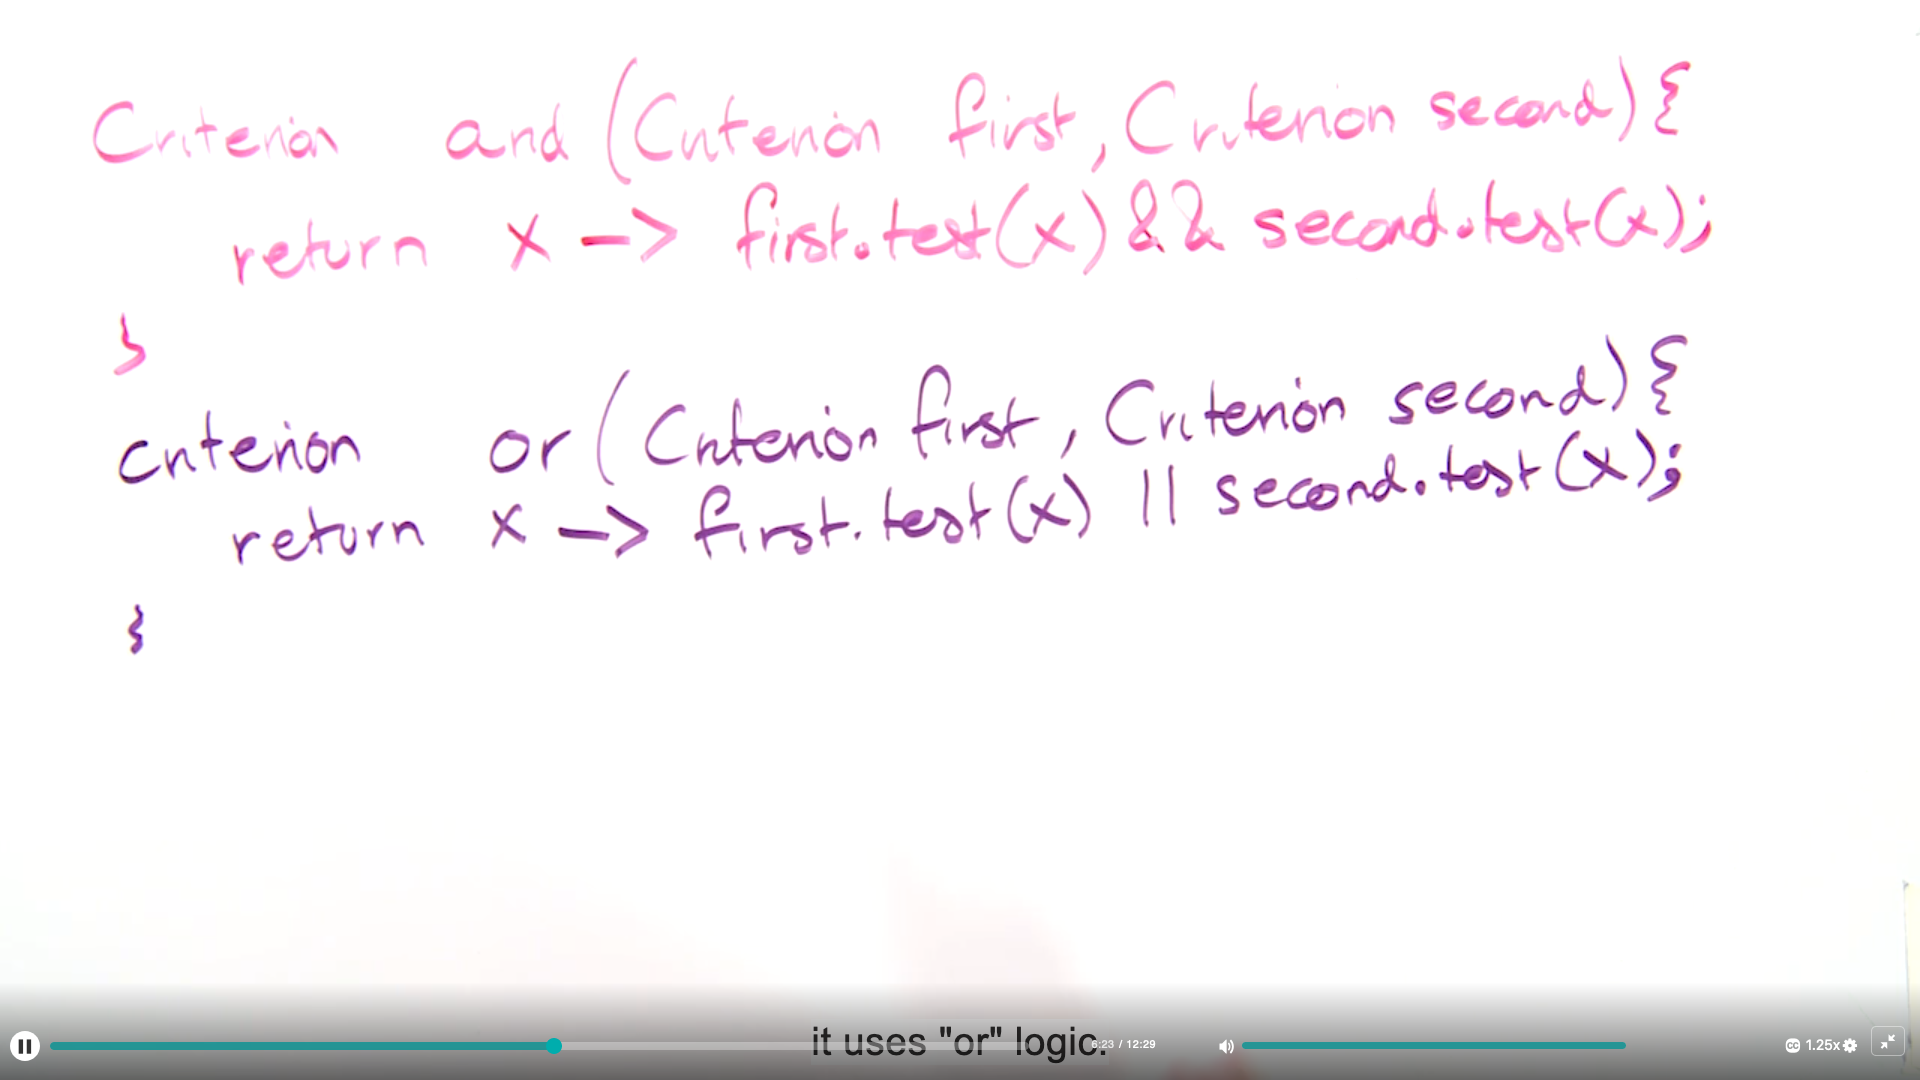 Criterion and (Criterion first, Criterion second) {
return x -> first.test(x) && second.test(x);
}
criterion or (Criterion first, Criterion second) {
return x -> first.test(x) || second.test(x);
}
it uses "or" logic.
6:23 / 12:29
CC 1.25x